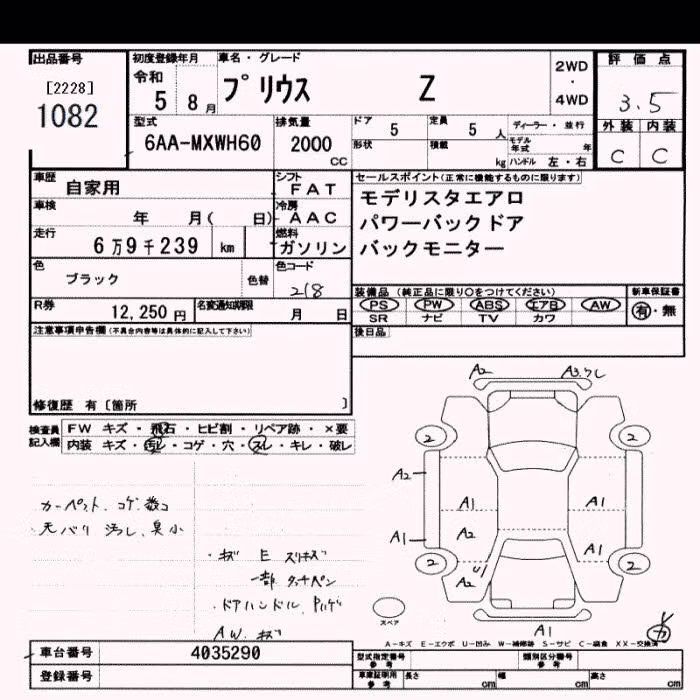 出品番号
[2228]
1082
初度登録年月
令和
5 8月
車名・グレード
プリウス Z
2WD
・
4WD
評価点
3.5
外装 内装
C C
型式
6AA-MXWH60
排気量
2000
CC
ドア 5
定員 5 人
形状
積載 kg
ディーラー・並行
モデル年式 年
ハンドル 左・右
車歴 自家用
シフト FAT
車検 年 月( 日)
冷房 AAC
走行 6万9千239 km
燃料 ガソリン
色 ブラック
色替
色コード
218
R券 12,250円
名変通知期限 月 日
セールスポイント(正常に機能するものに限ります)
モデリスタエアロ
パワーバックドア
バックモニター
装備品(純正品に限り○をつけてください)
PS PW ABS エアB AW
SR ナビ TV カワ
新車保証書
有・無
後日品
注意事項申告欄(不具合内容等は具体的に記入して下さい)
修復歴 有〔箇所 〕
検査員記入欄
FW キズ・飛石・ヒビ割・リペア跡・×要
内装 キズ・汚レ・コゲ・穴・スレ・キレ・破レ
カーペット、コゲ、数コ
天バリ 汚レ、臭小
・キズ E スリキズ
一部タッチペン
・ドアハンドル、Pハゲ
AW、キズ
A2
A3.ワレ
2
2
A2
A1
A1
A1
A2
A1
2
U1
A2
2
スペア
A1
A-キズ E-エクボ U-凹み W-補修跡 S-サビ C-腐食 XX-交換済
車台番号 4035290
登録番号
型式指定番号 参考
類別区分番号 参考
車庫証明用 参考
長さ cm
幅 cm
高さ cm